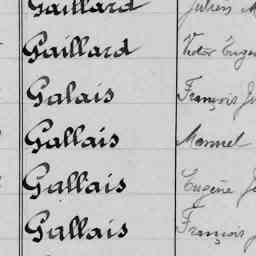 Gaillard Julien
Gaillard Victor Eugène
Galais François
Gallais Manuel
Gallais Eugène
Gallais François